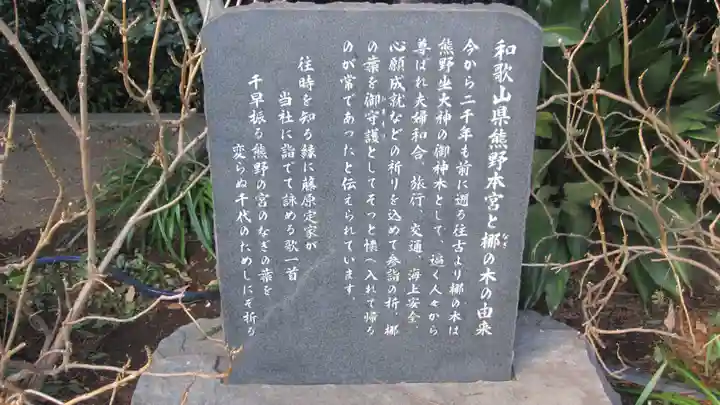 和歌山県熊野本宮と梛の木の由来
なぎ
今から二千年も前に遡る往古より梛の木は
熊野坐大神の御神木として、遍く人々から
尊ばれ夫婦和合、旅行、交通、海上安全、
心願成就などの祈りを込めて参詣の折、梛
の葉を御守護としてそっと懐へ入れて帰る
のが常であったと伝えられています。
往時を知る縁に藤原定家が
当社に詣でて詠める歌一首
千早振る熊野の宮のなぎの葉を
変らぬ千代のためしにぞ折る